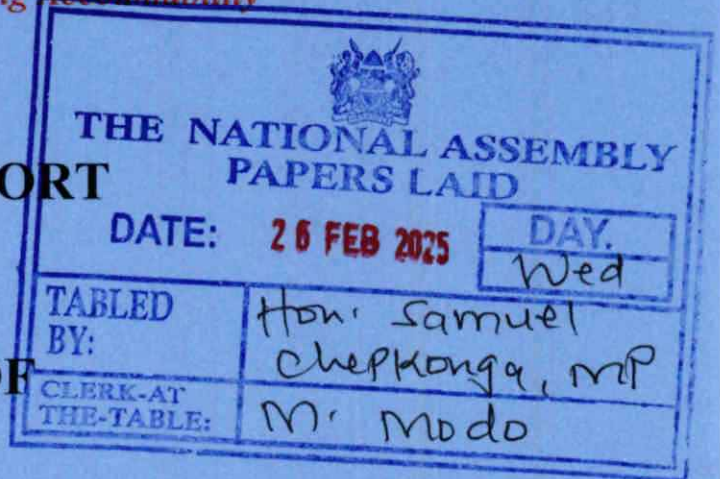 THE NATIONAL ASSEMBLY
PAPERS LAID
ORT
DATE: 26 FEB 2025
DAY.
Wed
TABLED
BY:
Hon. Samuel
Chepkonga, MP
OF
CLERK-AT
THE-TABLE:
M. Modo